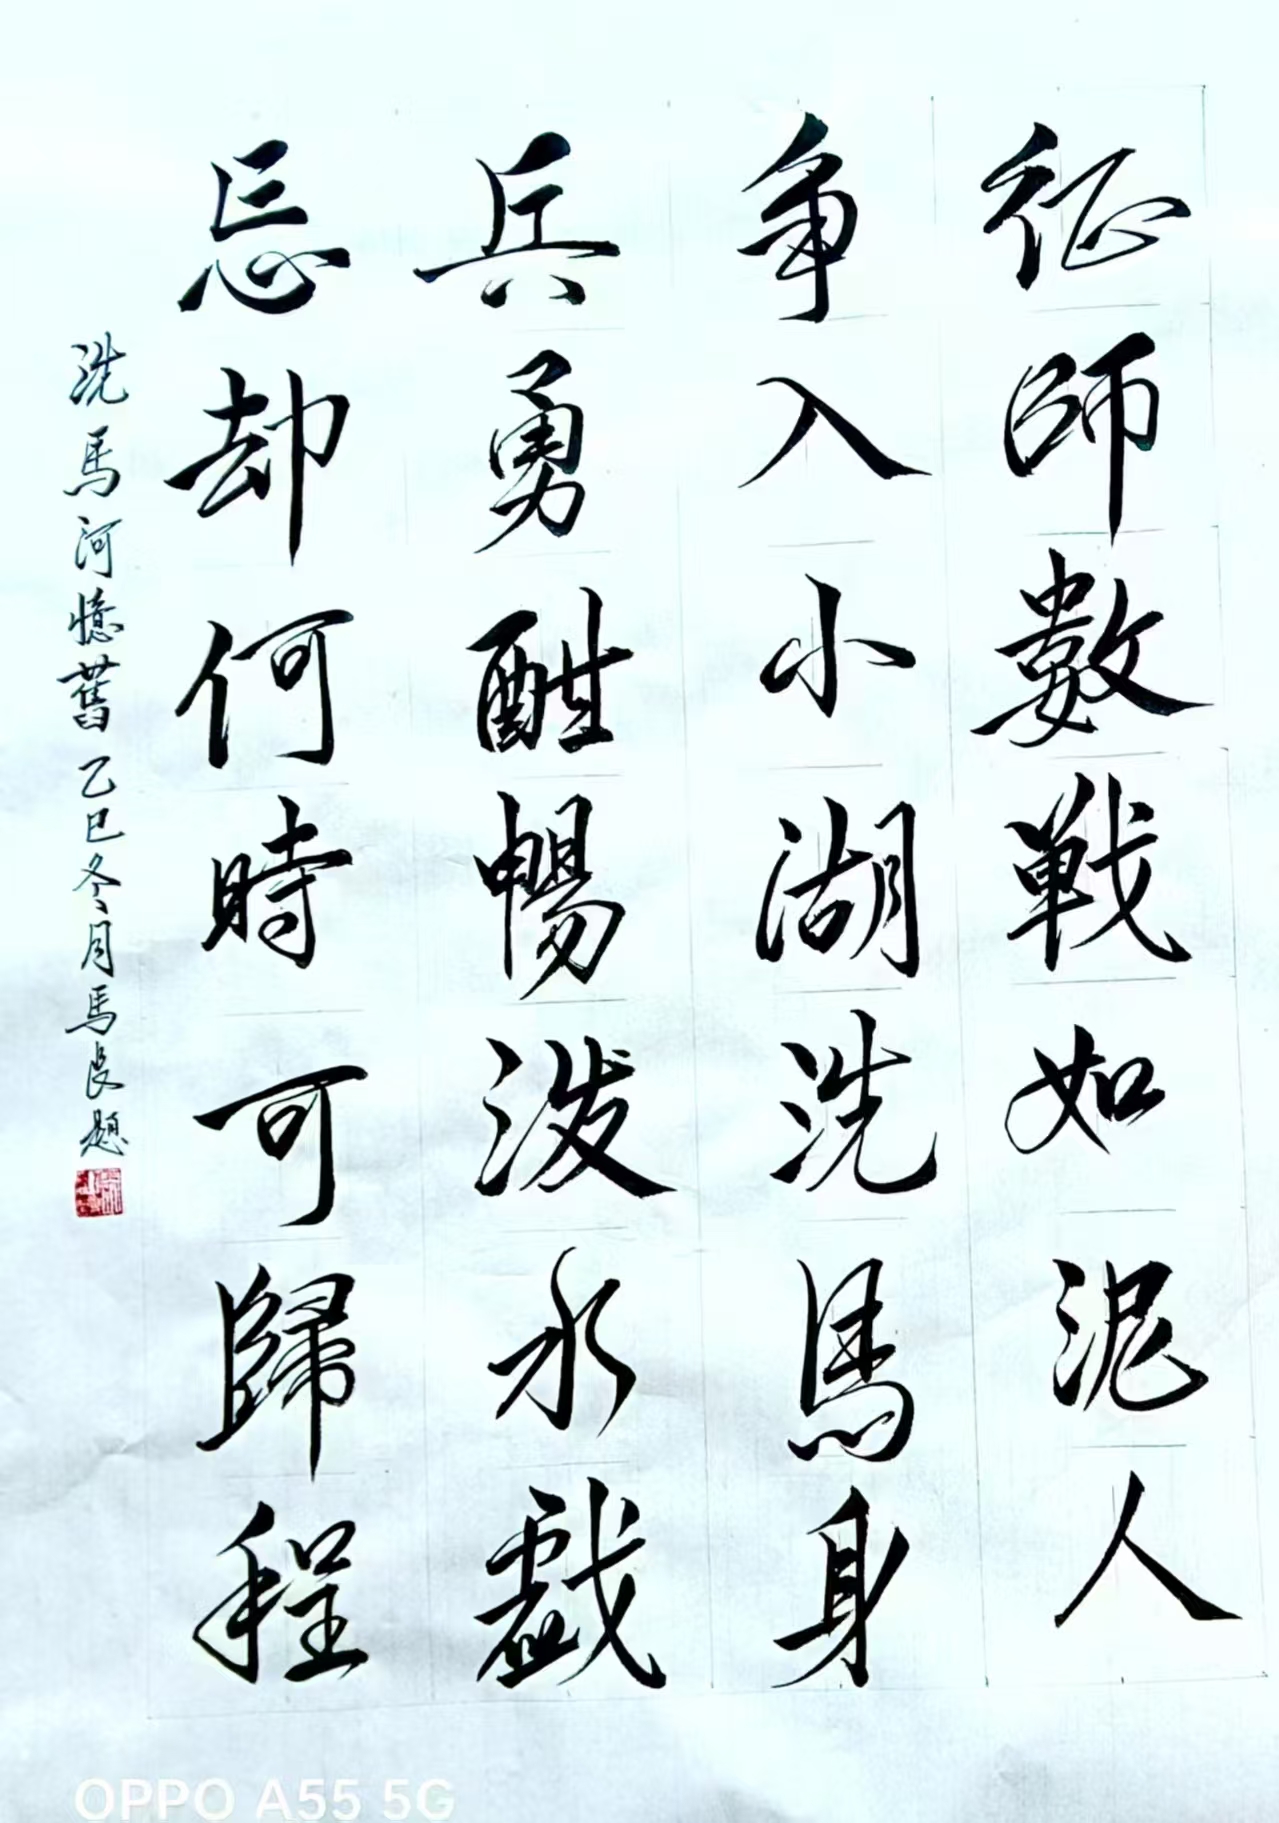 征師數戰如泥人
爭入小湖洗馬身
兵勇酣暢潑水戲
忘却何時可歸程
洗馬河憶舊 乙巳冬月馬良題
OPPO A55 5G